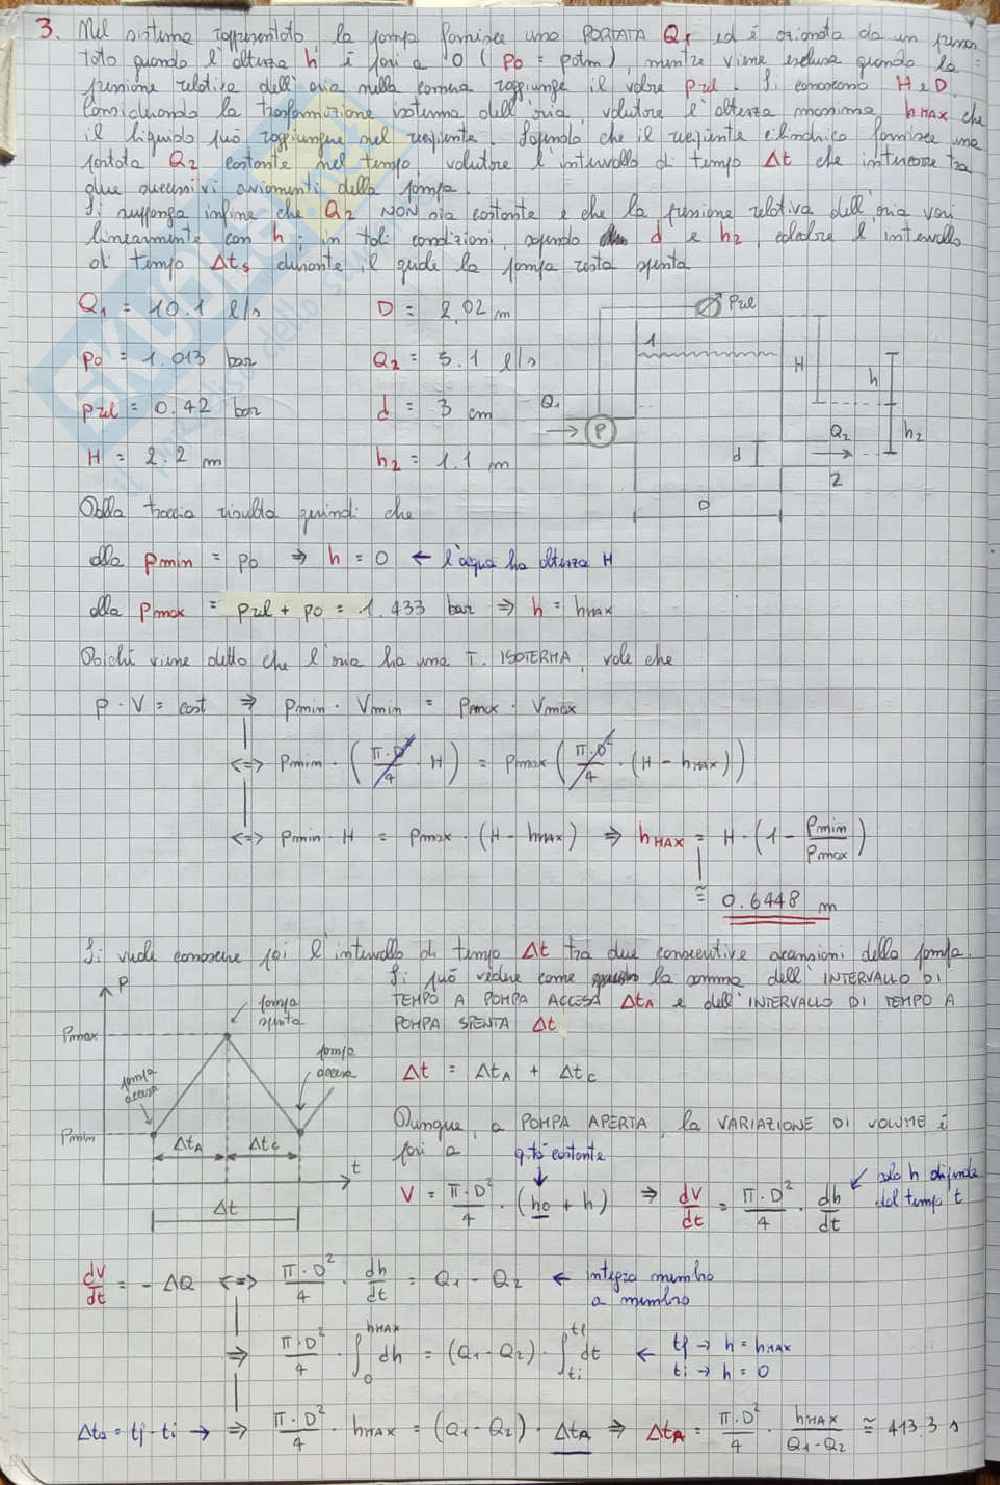 3. Nel sistema rappresentato la pompa fornisce una PORTATA Q1 ed è azionata da un presso
stato quando l'altezza h è pari a 0 (po = patm), mentre viene esclusa quando la
pressione relativa dell'aria nella camera raggiunge il valore prel. Si conoscono H e D.
Considerando la trasformazione isoterma dell'aria, valutare l'altezza massima hMAX che
il liquido può raggiungere nel recipiente. Sapendo che il recipiente cilindrico fornisce una
portata Q2 costante nel tempo valutare l'intervallo di tempo Δt che intercorre tra
due successivi avviamenti della pompa.
Si supponga infine che Q2 NON sia costante e che la pressione relativa dell'aria vari
linearmente con h; in tali condizioni, sapendo d e h2, calcolare l'intervallo
di tempo Δts durante il quale la pompa resta spenta
Q1 = 10.1 l/s D = 2.02 m
po = 1.013 bar Q2 = 5.1 l/s
prel = 0.42 bar d = 3 cm
H = 2.2 m h2 = 1.1 m
prel
1
H
h
Q1
P
Q2
h2
d
2
D
Dalla traccia risulta quindi che
alla pmin = po ⇒ h = 0 ← l'acqua ha altezza H
alla pmax = prel + po = 1.433 bar ⇒ h = hmax
Poiché viene detto che l'aria ha una T. ISOTERMA, vale che
p · V = cost ⇒ pmin · Vmin = pmax · Vmax
⇔ pmin · (π·D²/4 · H) = pmax (π·D²/4 · (H - hMAX))
⇔ pmin · H = pmax · (H - hMAX) ⇒ hMAX = H · (1 - pmin/pmax)
≅ 0.6448 m
Si vuole conoscere poi l'intervallo di tempo Δt tra due consecutive accensioni della pompa.
Si può vedere come la somma dell'INTERVALLO DI
TEMPO A POMPA ACCESA ΔtA e dell'INTERVALLO DI TEMPO A
POMPA SPENTA Δt
P
pompa
spenta
Pmax
pompa
accesa
pompa
accesa
Pmin
ΔtA
ΔtC
t
Δt
Δt = ΔtA + ΔtC
Dunque, a POMPA APERTA, la VARIAZIONE DI VOLUME è
pari a q.tà costante
V = π·D²/4 · (ho + h) ⇒ dV/dt = π·D²/4 · dh/dt
solo h dipende
dal tempo t
dV/dt = - ΔQ ⇔ π·D²/4 · dh/dt = Q1 - Q2 ← integro membro
a membro
⇒ π·D²/4 · ∫₀^hMAX dh = (Q1 - Q2) · ∫ti^tf dt ← tf → h = hMAX
ti → h = 0
Δta = tf - ti → ⇒ π·D²/4 · hMAX = (Q1 - Q2) · ΔtA ⇒ ΔtA = π·D²/4 · hMAX/(Q1-Q2) ≅ 413.3 s